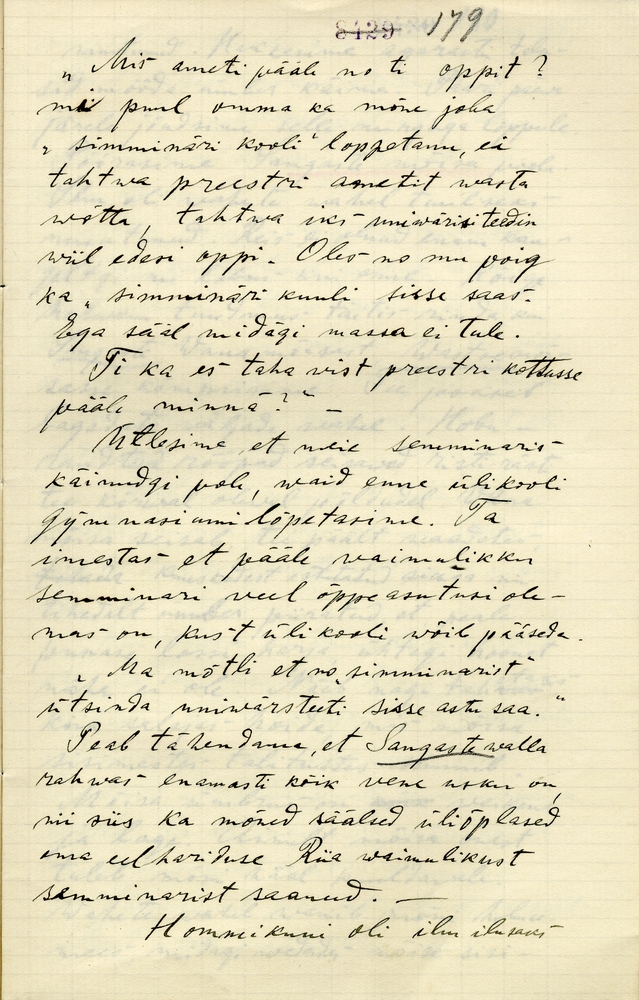 8429 1790
„Mis ameti pääle no ti oppit?
mi puul omma ka mõne joba
„simminäri kooli“ loppetanu, ei
tahtwa preestri ametit wasta
wõtta, tahtwa iks uniwärisiteedin
wiil edesi oppi. Oles no mu poig
ka „simminäri kuuli sisse saas.
Ega sääl midägi massa ei tule.
Ti ka es taha vist preestri kottusse
pääle minnä?“ –
Ütlesime, et meie semminaris
käinudgi pole, waid enne ülikooli
gümnasiumi lõpetasime. Ta
imestas et pääle waimulikku
semminari veel õppeasutusi ole-
mas on, kust ülikooli wõib pääseda.
„Ma mõtli et no „simminarist“
ütsinda uniwärsteeti sisse astu saa.“
Peab tähendama, et Sangaste walla
rahwas enamasti kõik vene usku on,
nii siis ka mõned säälsed üliõplased
oma eelhariduse Riia waimulikust
semminarist saanud. –
Hommikuni oli ilm ilusaks